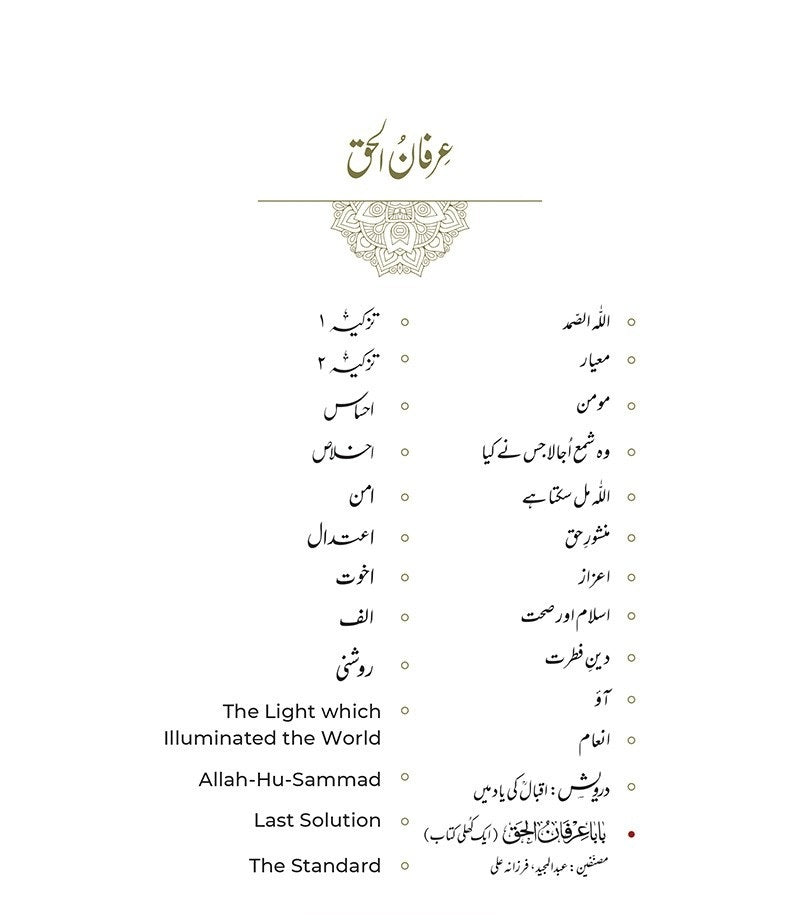 عِرفانُ الحق
اللہ الصّمد
معیار
مومن
وہ شمع اُجالا جس نے کیا
اللہ مل سکتا ہے
منشورِ حق
اعزاز
اسلام اور صحت
دینِ فطرت
آؤ
انعام
درویش: اقبالؒ کی یاد میں
بابا عِرْفَانُ الحَقْ (ایک کُھلی کتاب)
مصنّفین: عبدالمجید، فرزانہ علی
تزکیۂ ۱
تزکیۂ ۲
احساس
اخلاص
امن
اعتدال
اخوت
الف
روشنی
The Light which
Illuminated the World
Allah-Hu-Sammad
Last Solution
The Standard